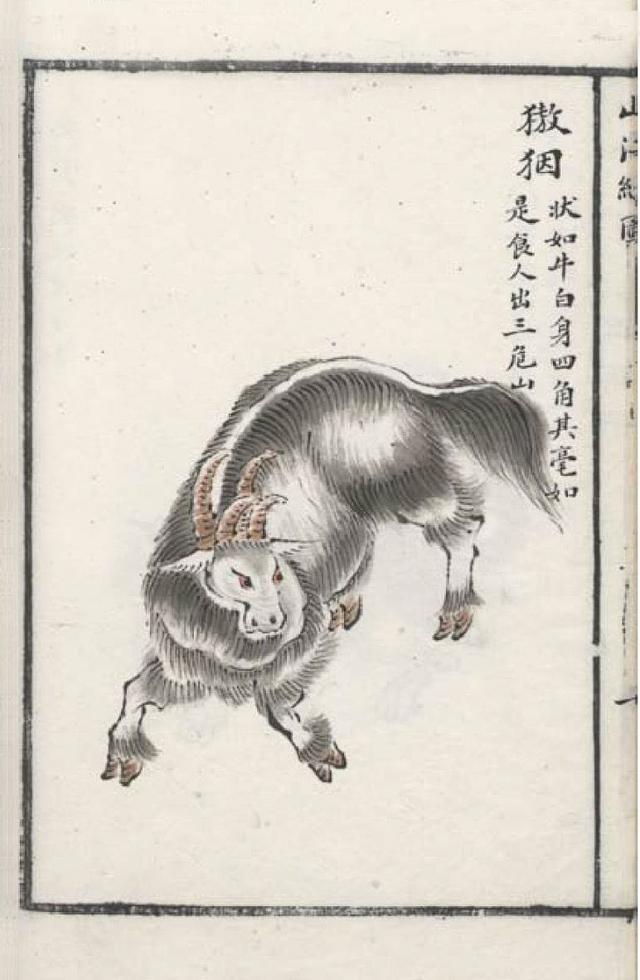 山海經圖
獓𤝱
狀如牛白身四角其毫如
是食人出三危山